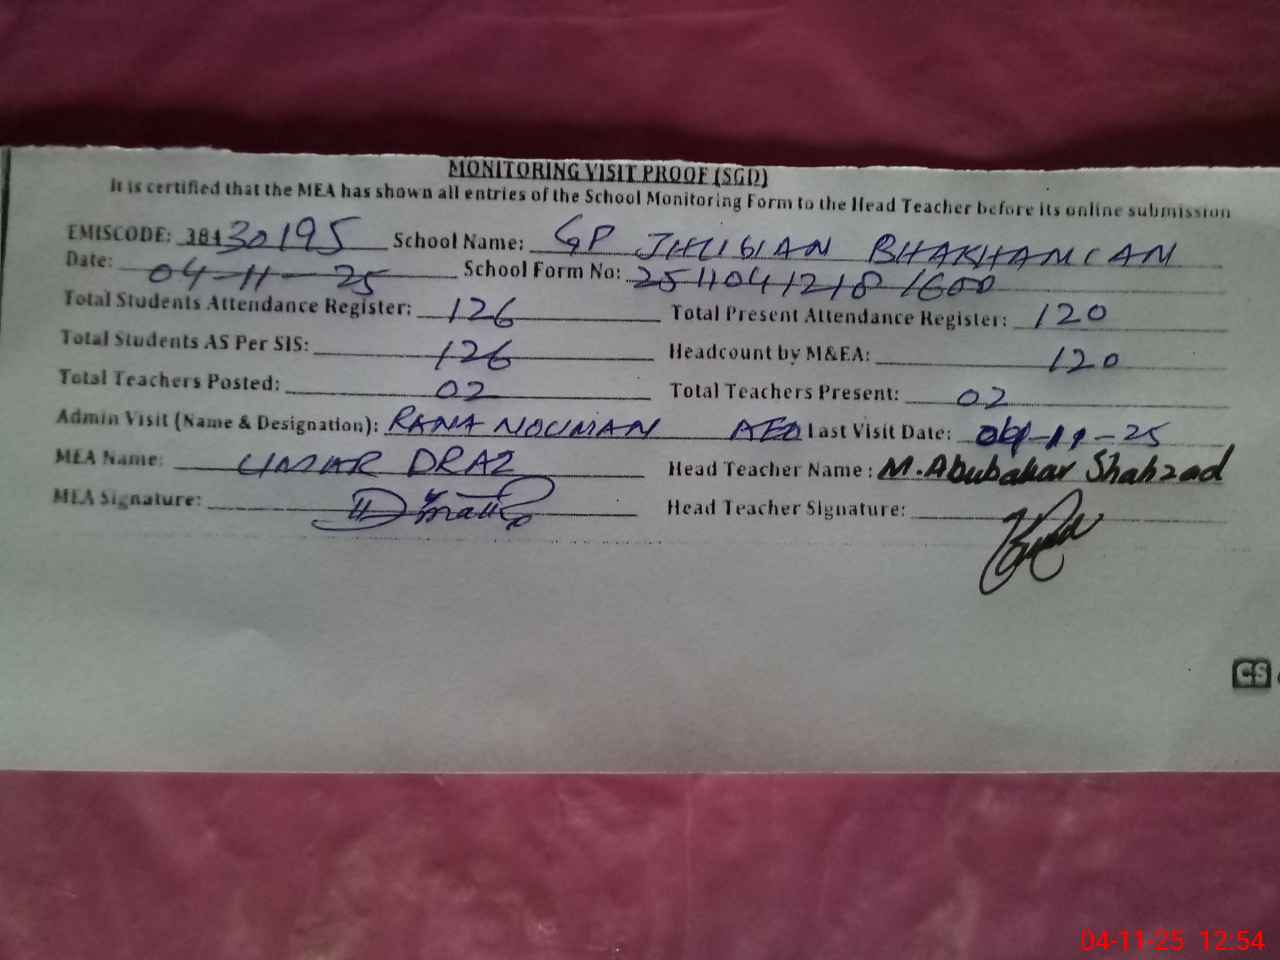 MONITORING VISIT PROOF (SGD)
It is certified that the MEA has shown all entries of the School Monitoring Form to the Head Teacher before its online submission
EMISCODE: 38430195 School Name: GP JHUGIAN BHAKHAN
Date: 04-11-25 School Form No: 25110412181600
Total Students Attendance Register: 126 Total Present Attendance Register: 120
Total Students AS Per SIS: 126 Headcount by M&EA: 120
Total Teachers Posted: 02 Total Teachers Present: 02
Admin Visit (Name & Designation): RANA NOUMAN AEO Last Visit Date: -11-25
MEA Name: UMAR DRAZ Head Teacher Name: M.Abubakar Shahzad
MEA Signature: Head Teacher Signature:
CS
04-11-25 12:54